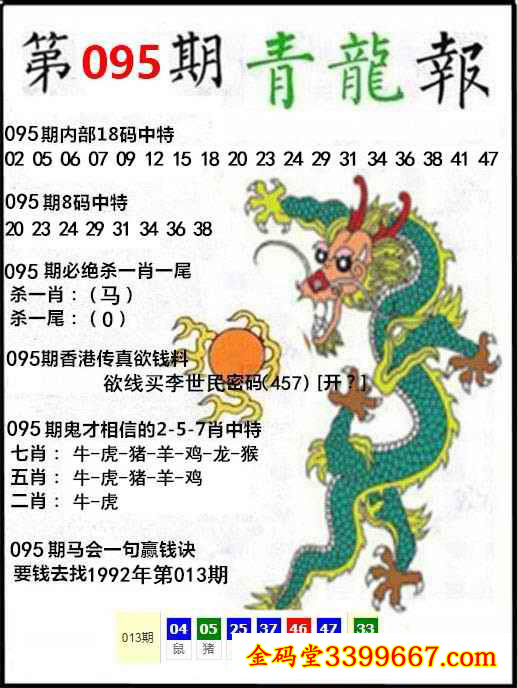 第095期青龍報
095期内部18码中特
02 05 06 07 09 12 15 18 20 23 24 29 31 34 36 38 41 47
095期8码中特
20 23 24 29 31 34 36 38
095期必绝杀一肖一尾
杀一肖：（马）
杀一尾：（0）
095期香港传真欲钱料
欲线买李世民密码(457) [开?]
095期鬼才相信的2-5-7肖中特
七肖：牛-虎-猪-羊-鸡-龙-猴
五肖：牛-虎-猪-羊-鸡
二肖：牛-虎
095期马会一句赢钱诀
要钱去找1992年第013期
013期 04 05 25 37 46 47 33
鼠 猪
金码堂3399667.com